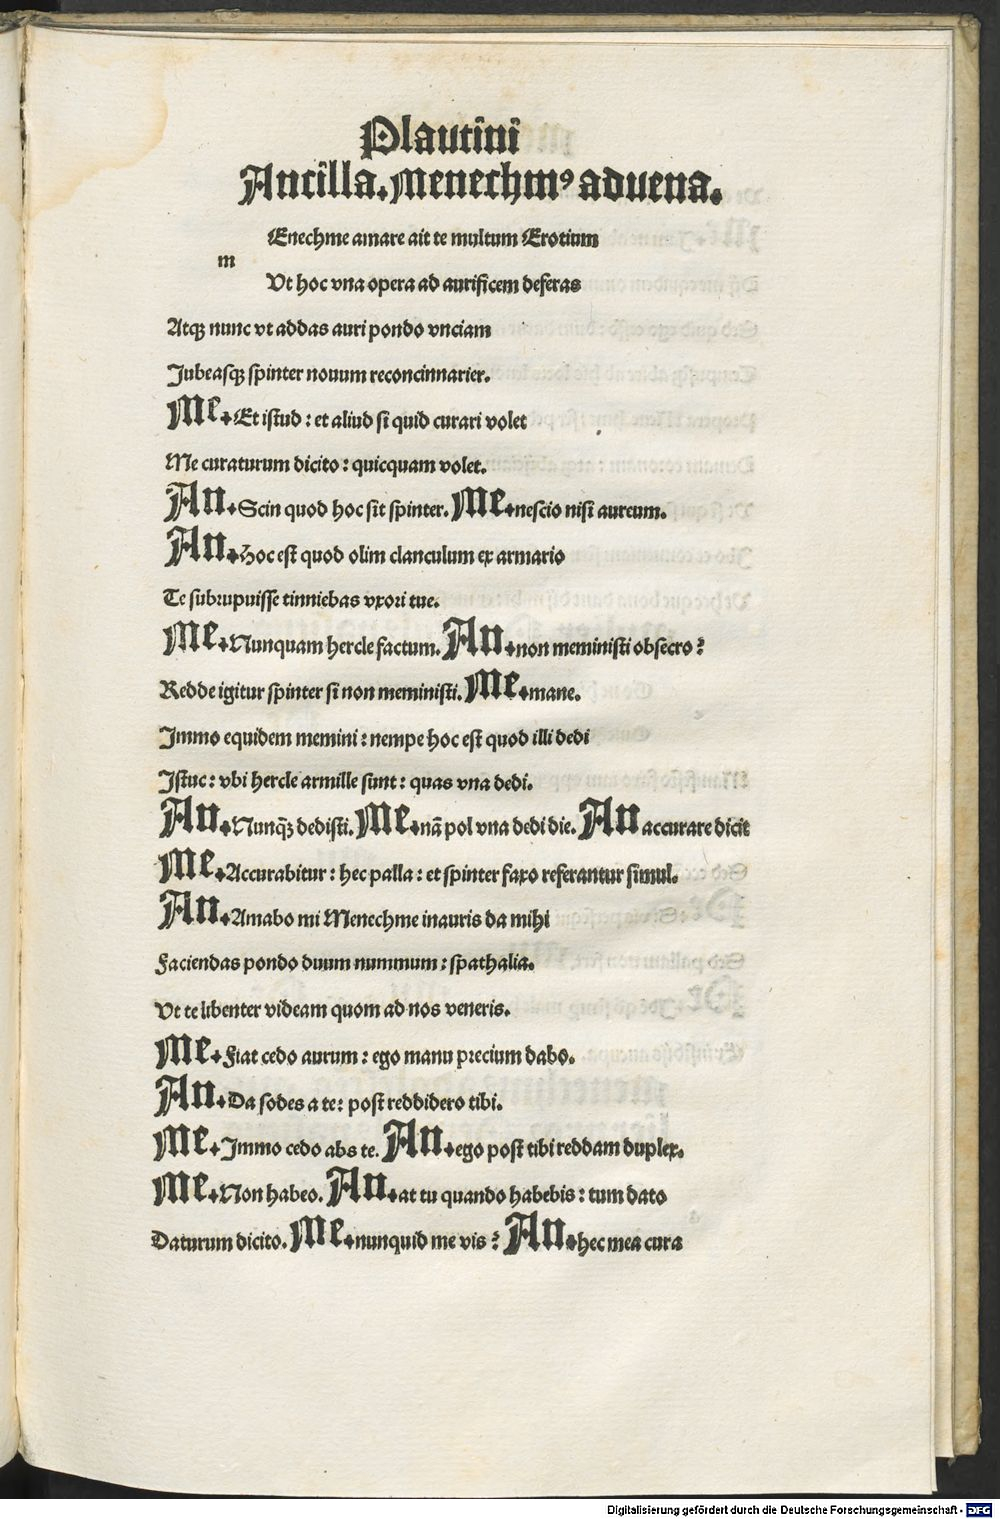 Plautini
Ancilla. Menechmꝰ aduena.
Enechme amare ait te multum Erotium
m
Vt hoc vna opera ad aurificem deferas
Atqꝫ nunc vt addas auri pondo vnciam
Jubeasqꝫ spinter nouum reconcinnarier.
Me. Et istud : et aliud si quid curari volet
Me curaturum dicito : quicquam volet.
An. Scin quod hoc sit spinter. Me. nescio nisi aureum.
An. Hoc est quod olim clanculum ex armario
Te subrupuisse tinniebas vxori tue.
Me. Nunquam hercle factum. An. non meministi obsecro?
Redde igitur spinter si non meministi. Me. mane.
Jmmo equidem memini : nempe hoc est quod illi dedi
Jstuc : vbi hercle armille sunt : quas vna dedi.
An. Nunqꝫ̄ dedisti. Me. nã pol vna dedi die. An accurare dicit
Me. Accurabitur : hec palla : et spinter faxo referantur simul.
An. Amabo mi Menechme inauris da mihi
Faciendas pondo duum nummum : spathalia.
Vt te libenter videam quom ad nos veneris.
Me. Fiat cedo aurum : ego manu precium dabo.
An. Da sodes a te : post reddidero tibi.
Me. Jmmo cedo abs te. An. ego post tibi reddam duplex.
Me. Non habeo. An. at tu quando habebis : tum dato
Daturum dicito. Me. nunquid me vis? An. hec mea cura
Digitalisierung gefördert durch die Deutsche Forschungsgemeinschaft - DFG